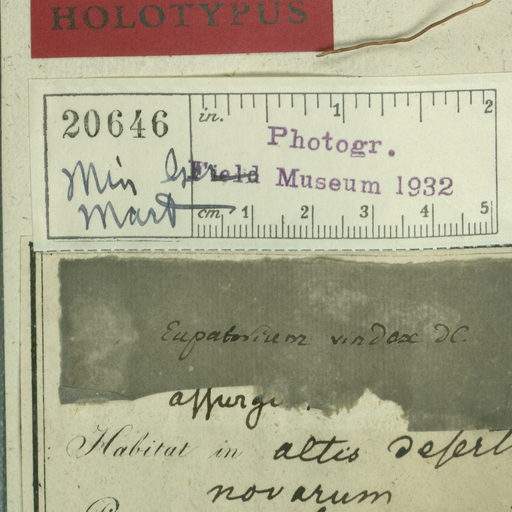 HOLOTYPUS
20646
in. 1 2
Photogr.
Min
Field Museum 1932
Mart
cm. 1 2 3 4 5
Eupatorium vindex DC.
assurgi
Habitat in altis desert
novarum